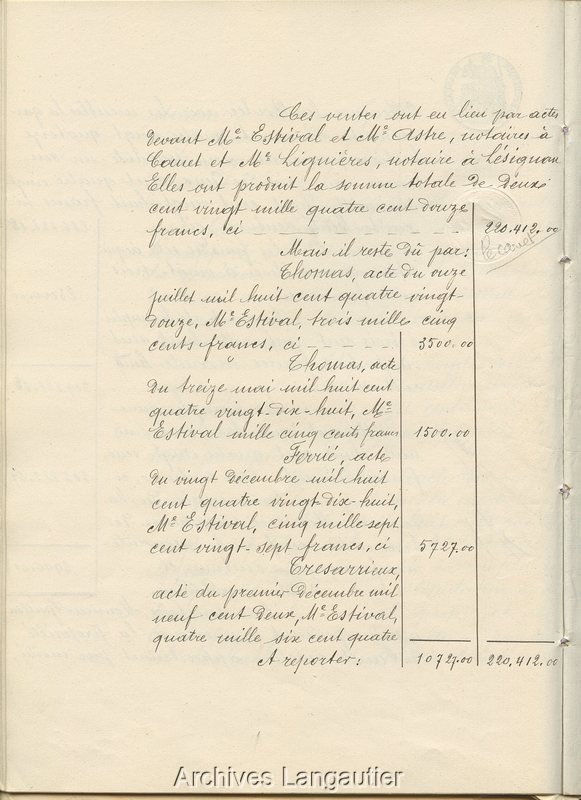 Ces ventes ont eu lieu par actes
devant Me Estival et Me Astre, notaires à
Canet et Me Lignières, notaire à Lésignan
Elles ont produit la somme totale de Deux
cent vingt mille quatre cent douze
francs, ci 220.412.00
Mais il reste dû par:
Thomas, acte du onze
juillet mil huit cent quatre vingt
douze, Me Estival, trois mille cinq
cents francs, ci 3500.00
Thomas, acte
du treize mai mil huit cent
quatre vingt-dix-huit, Me
Estival mille cinq cents francs 1500.00
Ferrié, acte
du vingt décembre mil huit
cent quatre vingt-dix-huit,
Me Estival, cinq mille sept
cent vingt-sept francs, ci 5727.00
Tresarrieux,
acte du premier décembre mil
neuf cent deux, Me Estival,
quatre mille six cent quatre
A reporter: 10727.00 220.412.00
Archives Langautier